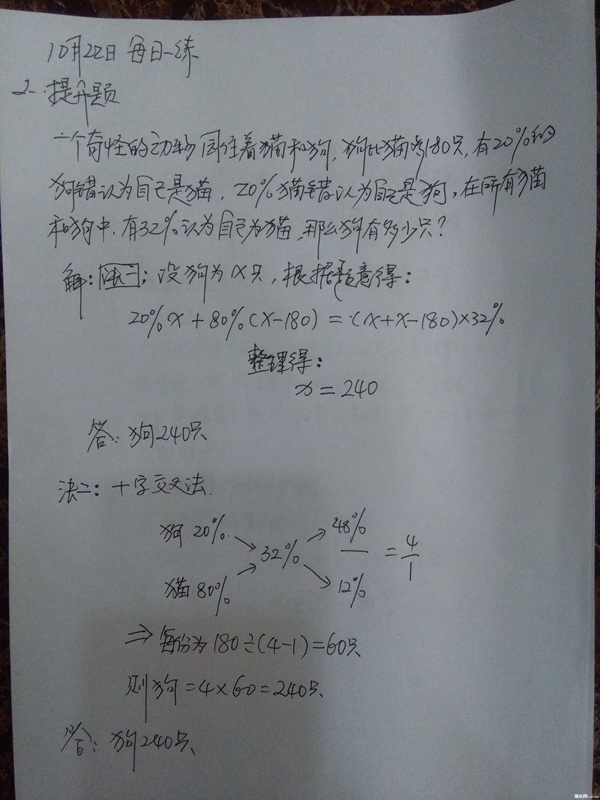 10月22日 每日一练
2. 提升题
一个奇怪的动物园住着猫和狗,狗比猫多180只,有20%的
狗错认为自己是猫,20%猫错认为自己是狗。在所有猫
和狗中,有32%认为自己为猫,那么狗有多少只?
解:法一:设狗为x只,根据题意得:
20%x+80%(x-180)=(x+x-180)×32%
整理得:
x=240
答:狗240只
法二:十字交叉法.
狗 20% 48%
32% = 4/1
猫 80% 12%
⇒ 每份为180÷(4-1)=60只
则狗=4×60=240只.
答:狗240只.